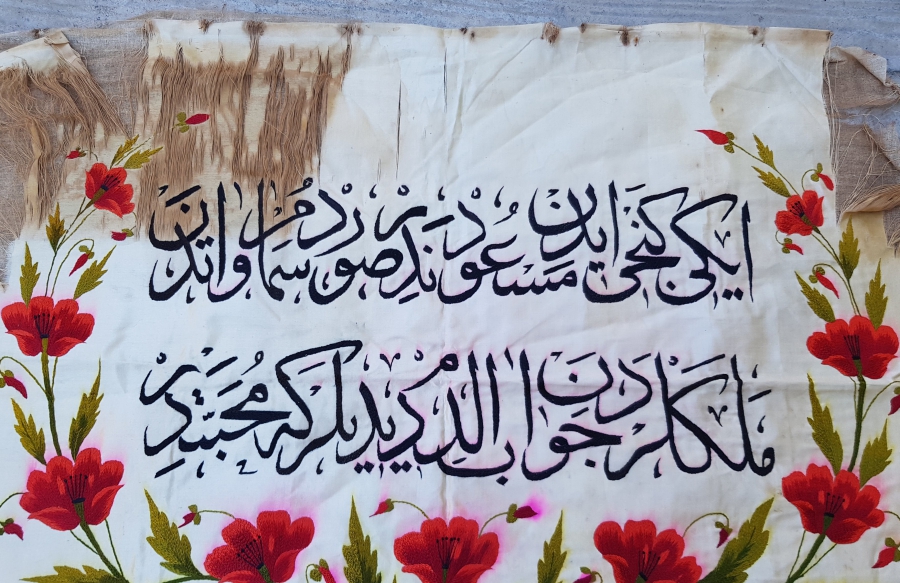 ایکی کنجی ایدن مسعود ندر صوردم سماواتدن
ملکلردن جواب الدم دیدیلرکه محبتدر